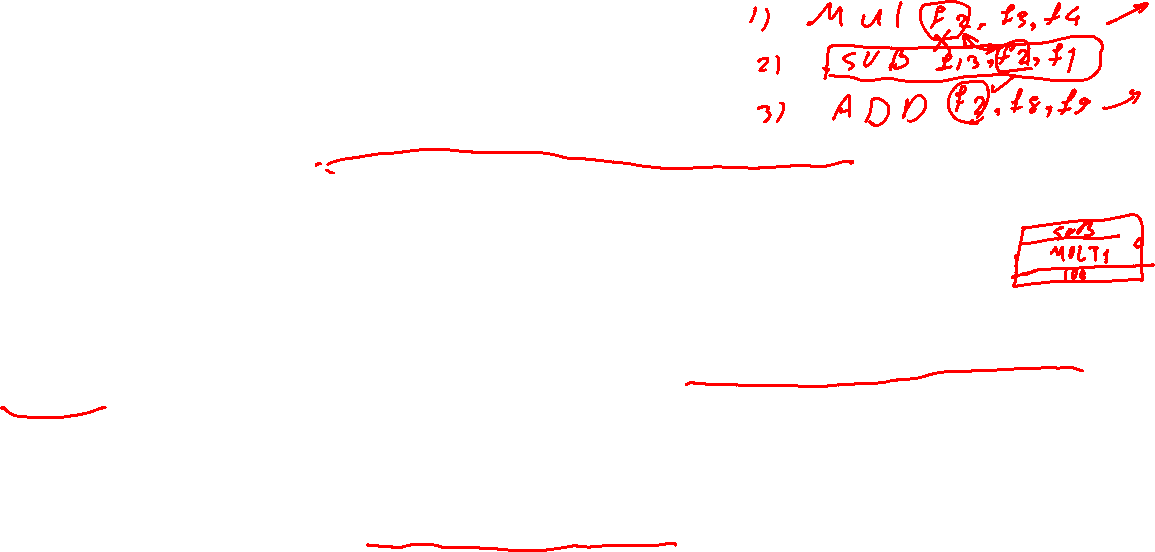 1) MUl f2, f3, f4
2) SUB f13, f2, f1
3) ADD f2, f8, f9
SUB
MULT1